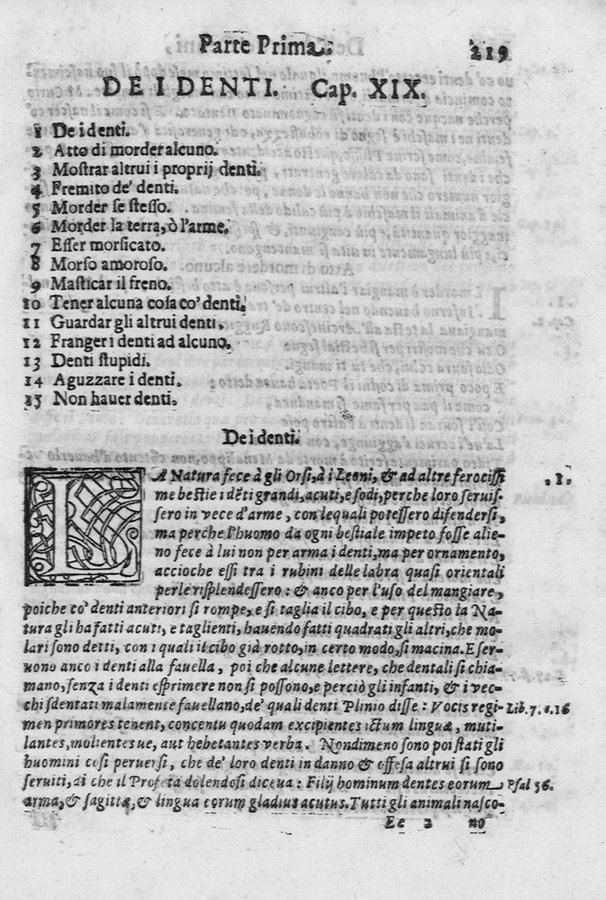 Parte Prima.
219
DE I DENTI. Cap. XIX.
1 De i denti.
2 Atto di morder alcuno.
3 Mostrar altrui i proprij denti.
4 Fremito de' denti.
5 Morder se stesso.
6 Morder la terra, ò l'arme.
7 Esser morsicato.
8 Morso amoroso.
9 Masticar il freno.
10 Tener alcuna cosa co' denti.
11 Guardar gli altrui denti.
12 Franger i denti ad alcuno.
13 Denti stupidi.
14 Aguzzare i denti.
15 Non hauer denti.
De i denti.
LA Natura fece à gli Orsi, à i Leoni, & ad altre ferocissi .1.
me bestie i dēti grandi, acuti, e sodi, perche loro seruis-
sero in vece d'arme, con lequali potessero difendersi,
ma perche l'huomo da ogni bestiale impeto fosse alie-
no fece à lui non per arma i denti, ma per ornamento,
accioche essi tra i rubini delle labra quasi orientali
perle risplendessero: & anco per l'uso del mangiare,
poiche co' denti anteriori si rompe, e si taglia il cibo, e per questo la Na-
tura gli ha fatti acuti, e taglienti, hauendo fatti quadrati gli altri, che mo-
lari sono detti, con i quali il cibo già rotto, in certo modo, si macina. E ser-
uono anco i denti alla fauella, poi che alcune lettere, che dentali si chia-
mano, senza i denti esprimere non si possono, e perciò gli infanti, & i vec-
chi sdentati malamente fauellano, de' quali denti Plinio disse: Vocis regi- Lib. 7. c. 16
men primores tenent, concentu quodam excipientes ictum linguæ, muti-
lantes, molientesue, aut hebetantes verba. Nondimeno sono poi stati gli
huomini cosi peruersi, che de' loro denti in danno & offesa altrui si sono
seruiti, di che il Profeta dolendosi diceua: Filij hominum dentes eorum Psal 56.
arma, & sagittæ, & lingua eorum gladius acutus. Tutti gli animali nasco-
Ee 2 no